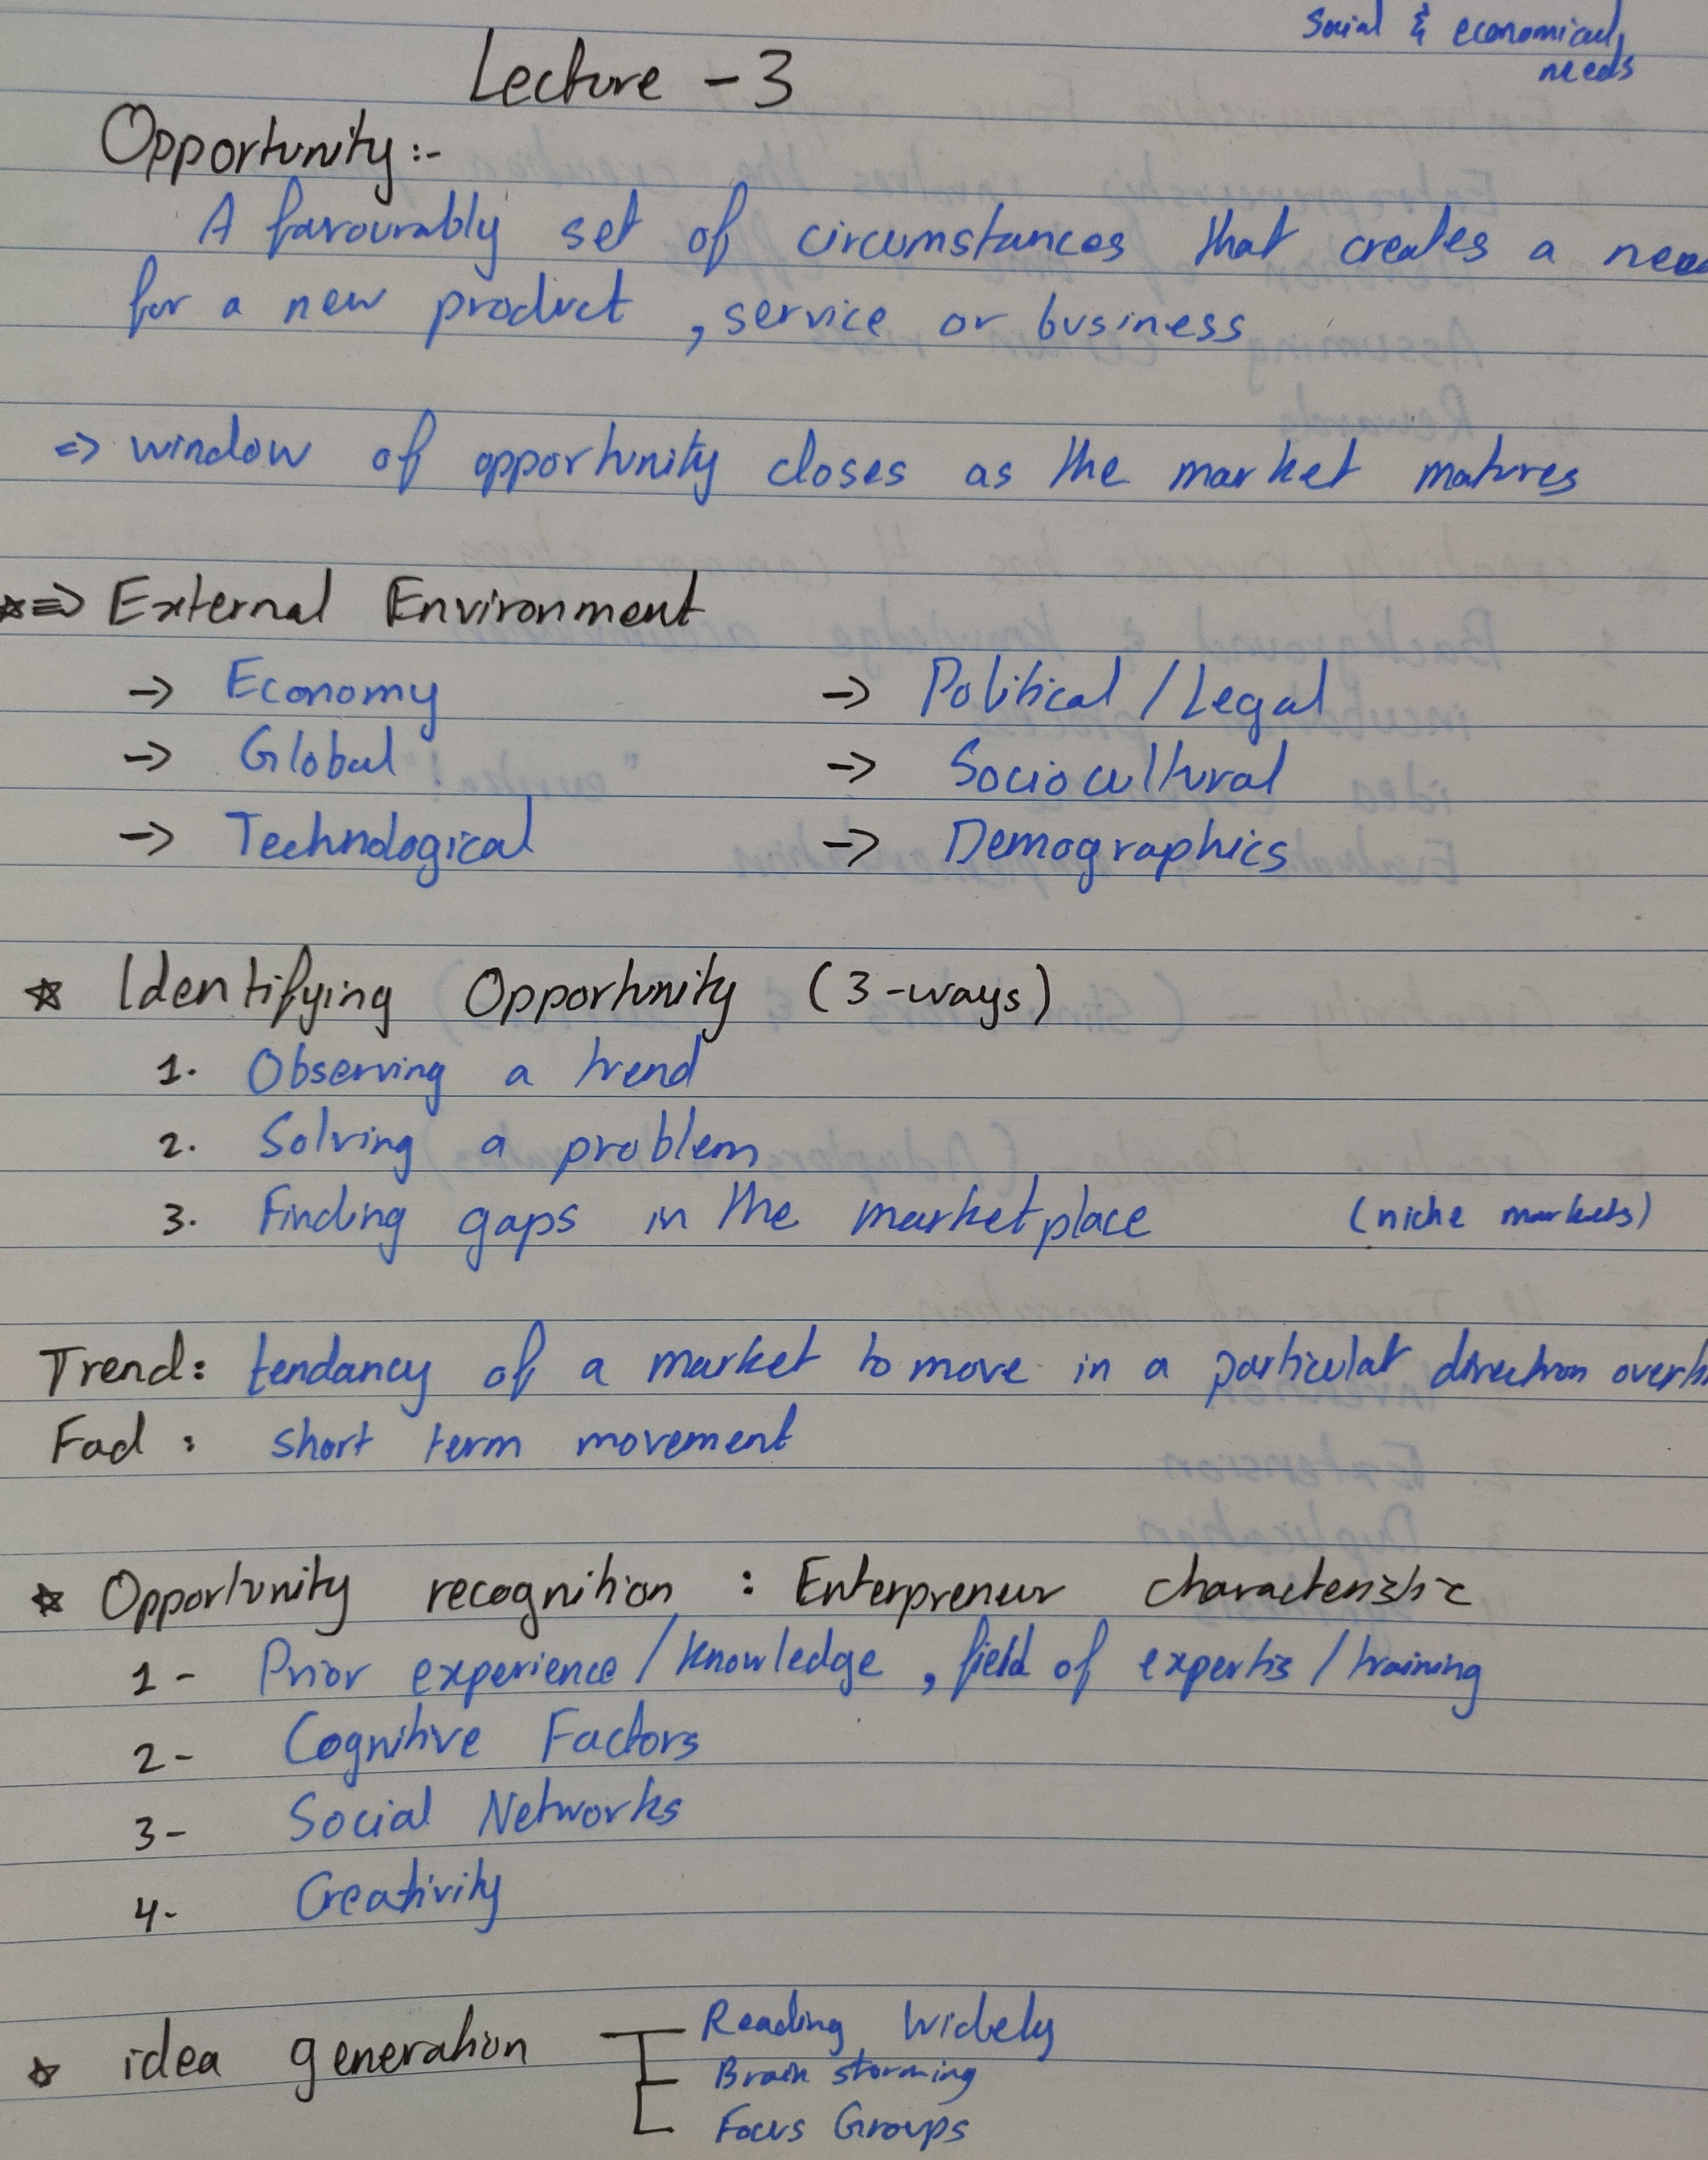 Social & economical
needs
Lecture - 3
Opportunity:-
A favourably set of circumstances that creates a need
for a new product, service or business
=> window of opportunity closes as the market matures
☆=> External Environment
-> Economy -> Political / Legal
-> Global -> Sociocultural
-> Technological -> Demographics
☆ Identifying Opportunity (3-ways)
1. Observing a trend
2. Solving a problem
3. Finding gaps in the marketplace (niche markets)
Trend: tendancy of a market to move in a particular direction over
Fad : short term movement
☆ Opportunity recognition : Enterpreneur characteristic
1- Prior experience / knowledge, field of expertis / training
2- Cognitive Factors
3- Social Networks
4- Creativity
☆ idea generation Reading Widely
Brain storming
Focus Groups